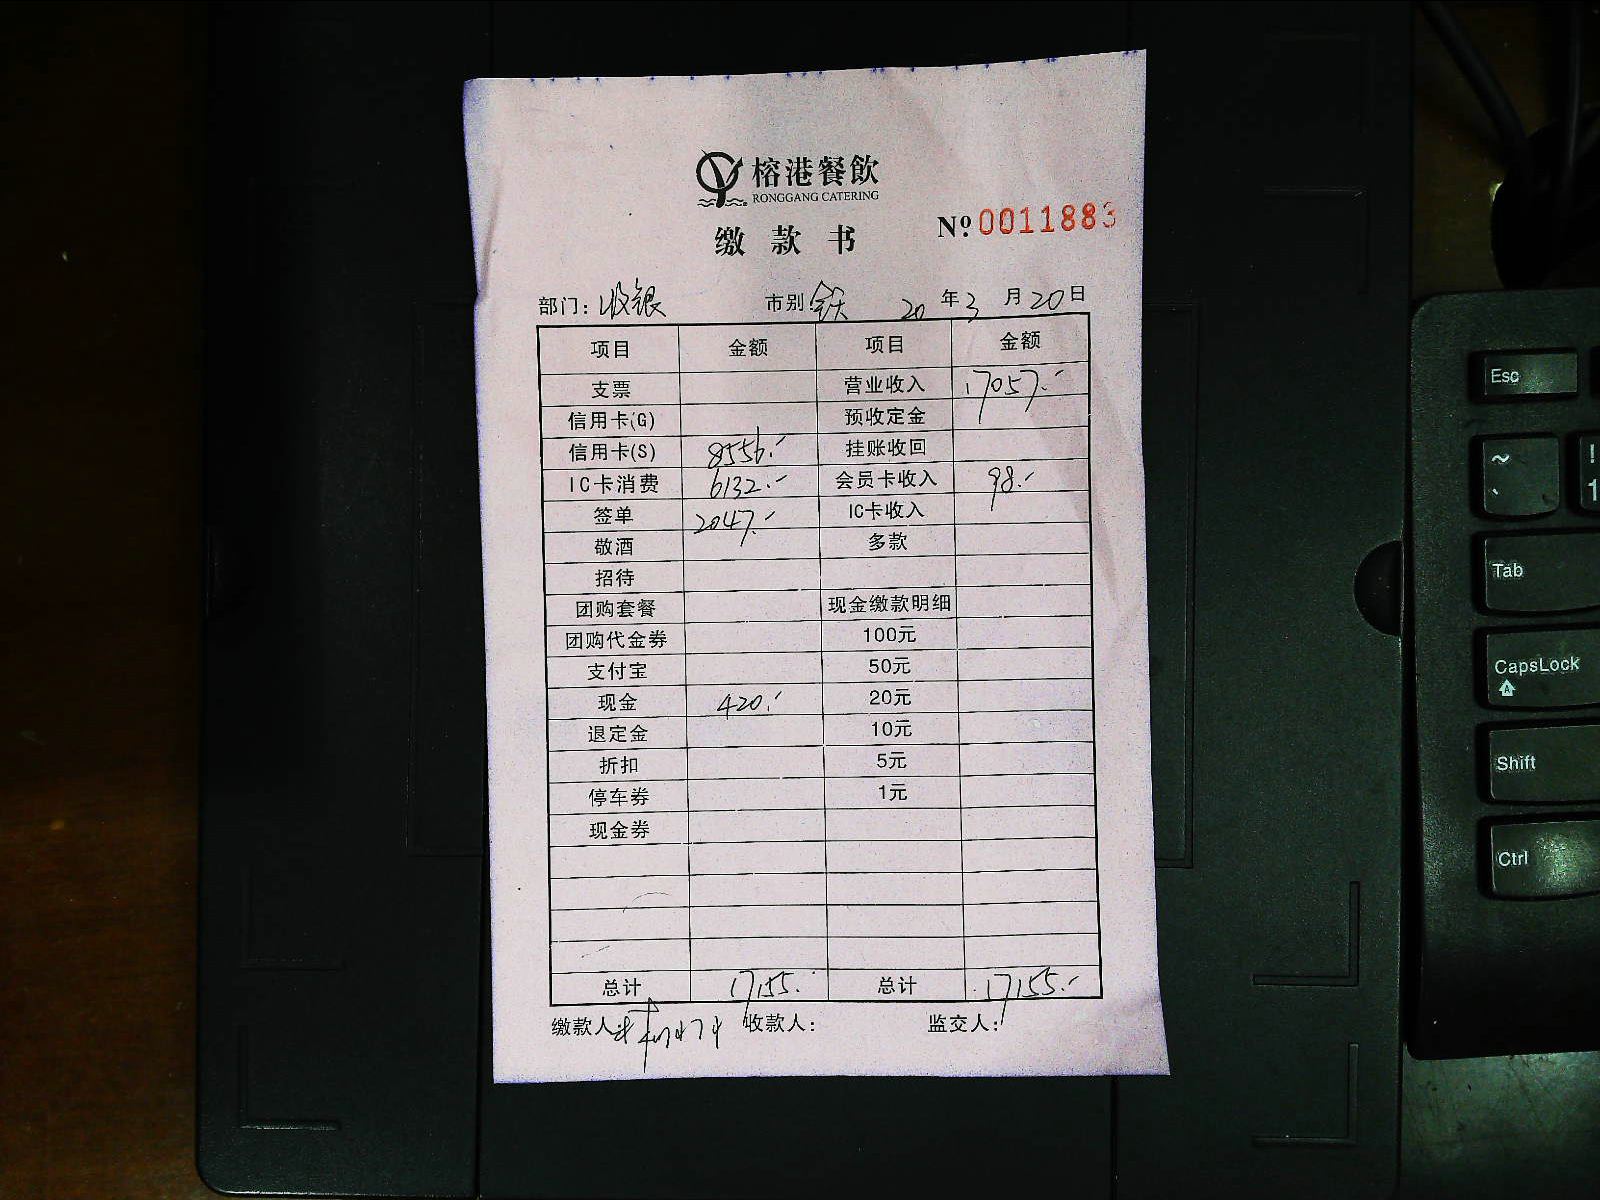 榕港餐飲
RONGGANG CATERING
缴款书 Nº 0011883
部门: 收银 市别: 全天 20年3月20日
项目 金额 项目 金额
支票 营业收入 17057.-
信用卡(G) 预收定金
信用卡(S) 8556.- 挂账收回
IC卡消费 6132.- 会员卡收入 98.-
签单 2047.- IC卡收入
敬酒 多款
招待
团购套餐 现金缴款明细
团购代金券 100元
支付宝 50元
现金 420.- 20元
退定金 10元
折扣 5元
停车券 1元
现金券
总计 17155. 总计 17155.-
缴款人: 收款人: 监交人:
Esc
~
` !
1
Tab
CapsLock
A
Shift
Ctrl